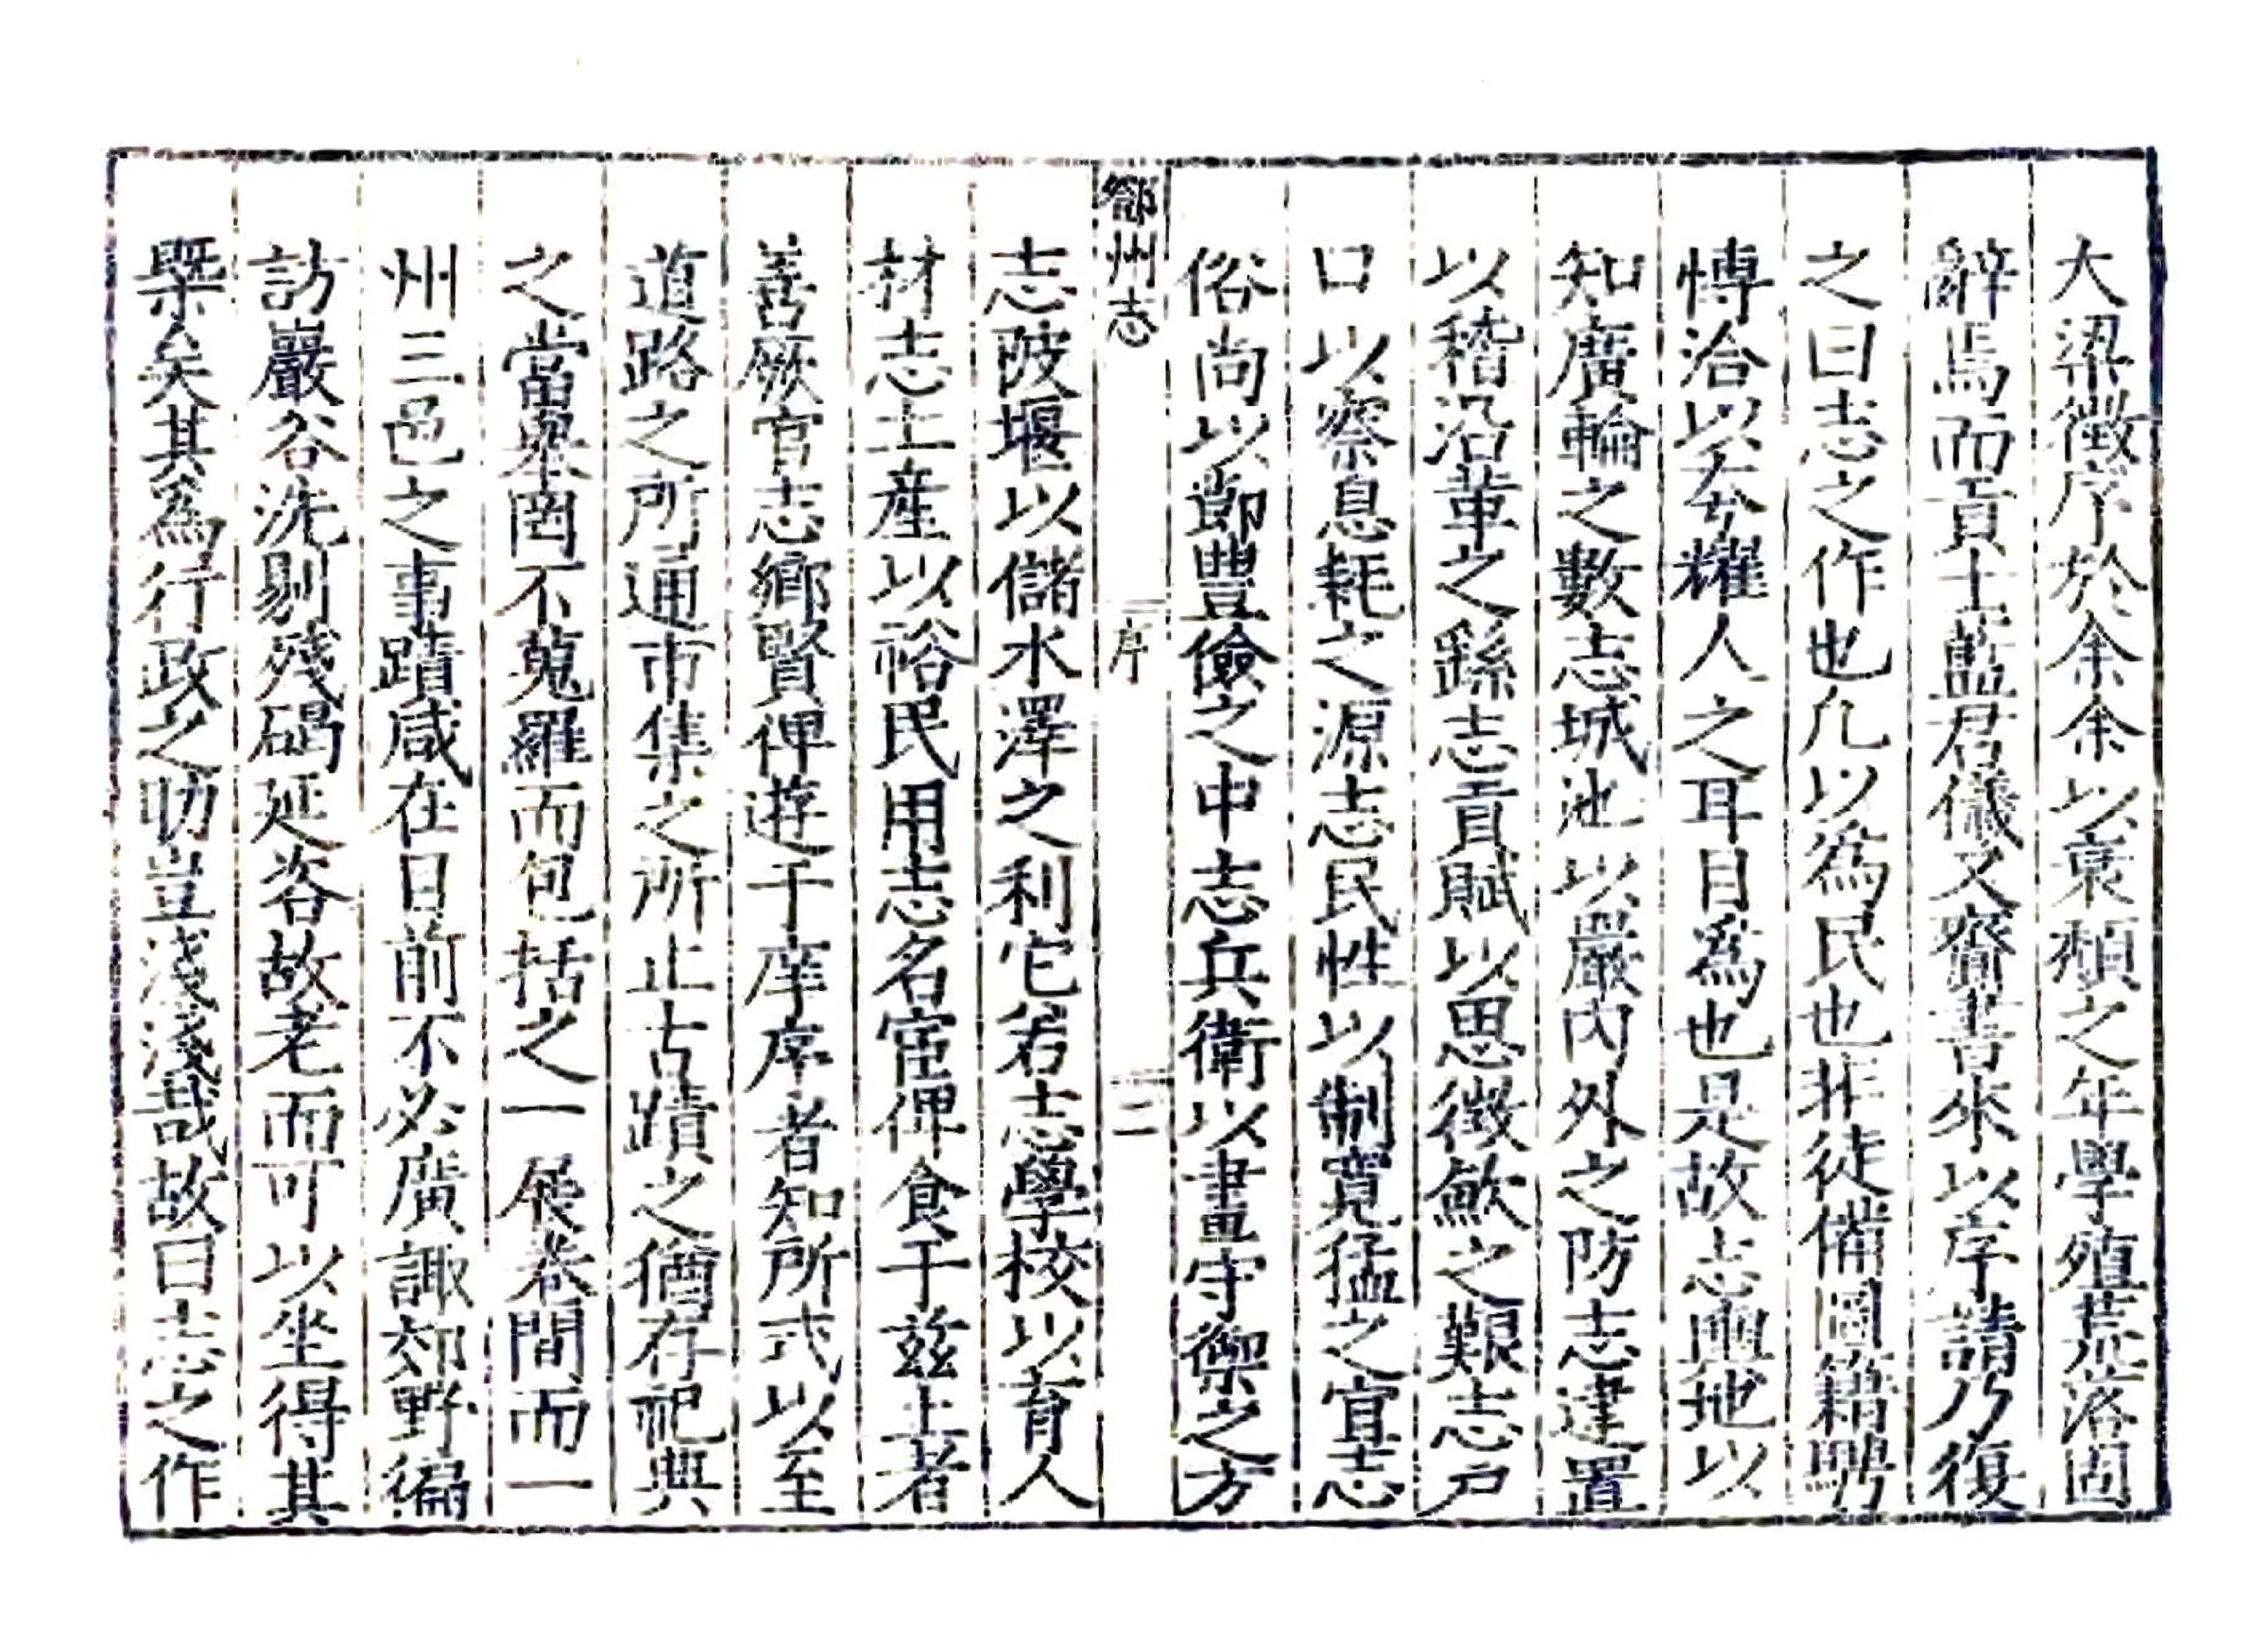 大梁徵序於余余以衰頹之年學殖荒落固
辭焉而貢士藍君儀又齎書來以序請乃復
之曰志之作也凡以為民也非徒備圖籍騁
愽洽以夸耀人之耳目爲也是故志輿地以
知廣輪之數志城池以嚴内外之防志建置
以稽沿革之繇志貢賦以思徵歛之艱志戸
口以察息耗之源志民性以制寬猛之宜志
俗尚以節豐儉之中志兵衛以畫守禦之方
鄧州志
序
二
志陂堰以儲水澤之利它若志學校以育人
材志土産以裕民用志名宦俾食于兹土者
善厥官志鄉賢俾遊于庠序者知所式以至
道路之所通市集之所止古蹟之猶存祀典
之當舉罔不蒐羅而包括之一展卷間而一
州三邑之事蹟咸在目前不必廣諏郊野徧
訪巖谷洗剔殘碣延咨故老而可以坐得其
槩矣其爲行政之助豈淺淺哉故曰志之作